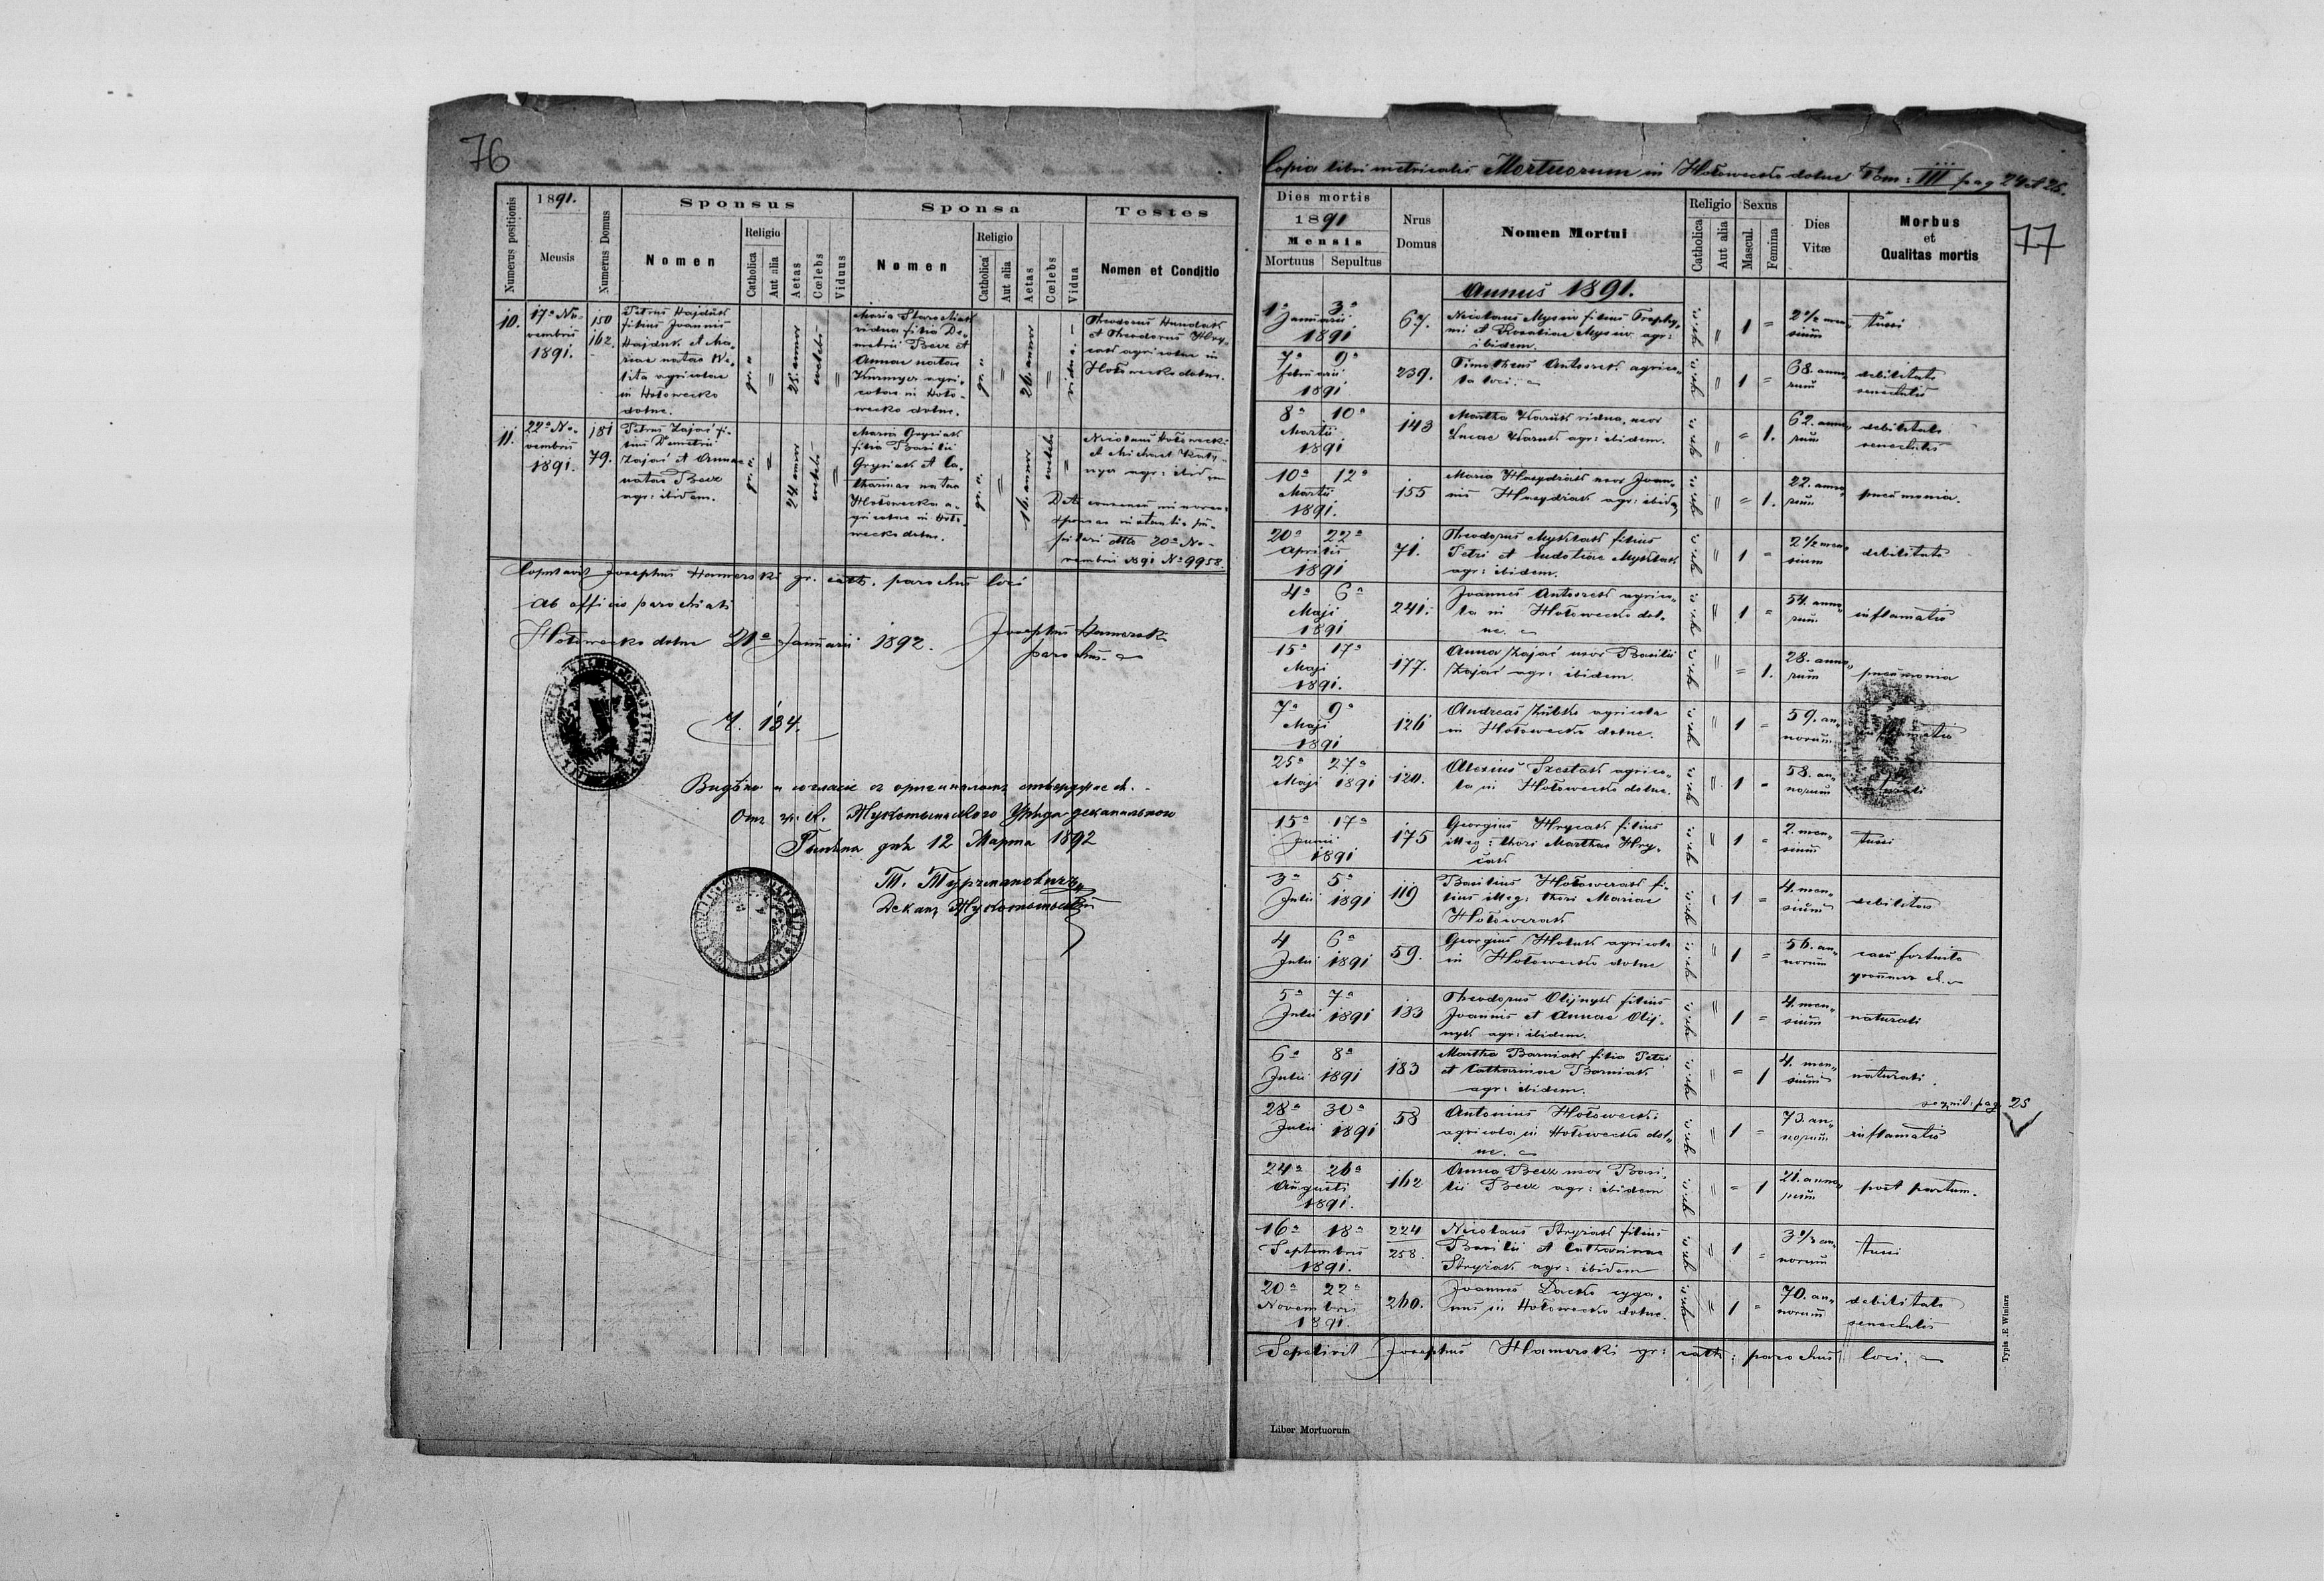 76
Numerus positionis
1891.
Mensis
Numerus Domus
Sponsus
Nomen
Religio
Catholica
Aut alia
Aetas
Cœlebs
Viduus
Sponsa
Nomen
Religio
Catholica
Aut alia
Aetas
Cœlebs
Vidua
Testes
Nomen et Conditio
10.
17a No-
vembris
1891.
150
162.
Petrus Hajduk
filius Joannis
Hajduk et Ma-
riae natae
agricolae
in Hołowecko
dolne.
gr. c.
=
25. annor
coelebs
=
Maria
vidua filia De-
metrii Becz et
Annae natae
agri-
colae in Hoło-
wecko dolne.
gr. c.
=
26. annor
=
vidua
Theodorus
et Theodorus Hry-
cak agricolae in
Hołowecko dolne.
11.
22a No-
vembris
1891.
181
79.
Petrus Zajac fi-
lius Demetrii
Zajac et Annae
natae Becz
agr: ibidem.
gr. c.
=
24 annor
coelebs
=
Maria Gryciak
filia Basilii
Gryciak et Ca-
tharinae natae
Hołowecka a-
gricolae in Hoło-
wecko dolne.
gr. c.
=
16. annor
coelebs
=
Nicolaus Hołowecki
et Michael
agr: ibidem
Dto consensu minoren:
sponsae
dtto 20a No-
vembris 1891 No 9958.
Copulavit Josephus Hamerski gr. cath. parochus loci
Ab officio parochiali
Hołowecko dolne 21a Januarii 1892.
Josephus Hamerski
parochus.
Ч. 134.
Видѣно и согласіе съ оригиналомъ стверджаесь.
Отъ гр. к. Жукотинского Уряда деканального
дня 12 Марта 1892
Деканъ Жукотинскій
Copia libri metricalis Mortuorum in Hołowecko dolne Tom: III pag 24 et 25.
77
Dies mortis
1891
Mensis
Mortuus
Sepultus
Nrus
Domus
Nomen Mortui
Religio
Catholica
Aut alia
Sexus
Mascul.
Femina
Dies
Vitæ
Morbus
et
Qualitas mortis
Annus 1891.
1a 3a
Januarii
1891
67.
Nicolaus Mysiw filius Trophy-
mi et Mysiw agr:
ibidem.
= 1 =
2 1/2 men-
sium
tussi
7a 9a
Februarii
1891
239.
Timotheus Antoszek agrico-
la loci.
= 1 =
68. anno-
rum
debilitate
senectutis
8a 10a
Martii
1891
143
Martha vidua, uxor
Lucae agr: ibidem.
= = 1.
62. anno-
rum
debilitate
senectutis
10a 12a
Martii
1891.
155
Maria Hneydziak uxor Joan-
nis Hneydziak agr: ibidem
= = 1.
22. anno-
rum
pneumonia.
20a 22a
Aprilis
1891
71.
Theodorus Mykitak filius
Petri et Eudokiae Mykitak
agr: ibidem.
= 1 =
2 1/2 men-
sium
debilitate
4a 6a
Maji
1891
241.
Joannes Antoszek agrico-
la in Hołowecko dol-
ne.
= 1 =
54. anno-
rum
inflamatio
15a 17a
Maji
1891.
177.
Anna Zajac uxor Basilii
Zajac agr: ibidem.
= = 1.
28. anno-
rum
pneumonia
7a 9a
Maji
1891
126
Andreas Zubko agricola
in Hołowecko dolne.
= 1 =
59. an-
norum
25a 27a
Maji 1891
120.
Alexius Szestak agrico-
la in Hołowecko dolne.
= 1 =
58. an-
norum
15a 17a
Junii
1891
175
Georgius Hrycak filius
illeg: thori Marthae Hry-
cak
= 1 =
2. men-
sium
tussi
3a 5a
Julii 1891
119
Basilius Hołowczak fi-
lius illeg: thori Mariae
Hołowczak
1 =
4. men-
sium
debilitas
4 6a
Julii 1891
59.
Georgius Hołuk agricola
in Hołowecko dolne
= 1 =
56. an-
norum
casu fortuito
5a 7a
Julii 1891
133
Theodorus Olijnyk filius
Joannis et Annae Olij-
nyk agr: ibidem.
= 1 =
4. men-
sium
naturali
6a 8a
Julii 1891
183
Martha Barniak filia Petri
et Catharinae Barniak
agr: ibidem.
= = 1
4. men-
sium
naturali.
sequit: pag. 25
28a 30a
Julii 1891
58
Antonius Hołowecki
agricola in Hołowecko dol-
ne.
= 1 =
73. an-
norum
inflamatio
24a 26a
Augusti
1891.
162
Anna Becz uxor Basi-
lii Becz agr: ibidem
= = 1
21. anno-
rum
post partum.
16a 18a
Septembris
1891.
224
258.
Nicolaus Stryiak filius
Basilii et Catharinae
Stryiak agr: ibidem
= 1 =
an-
norum
tussi
20a 22a
Novembris
1891.
260.
Joannes Dacko cyga-
nus in Hołowecko dolne.
= 1 =
70. an-
norum
debilitate
senectutis
Sepelivit Josephus Hamerski gr: cath: parochus loci.
Typis .E. Winiarz
Liber Mortuorum